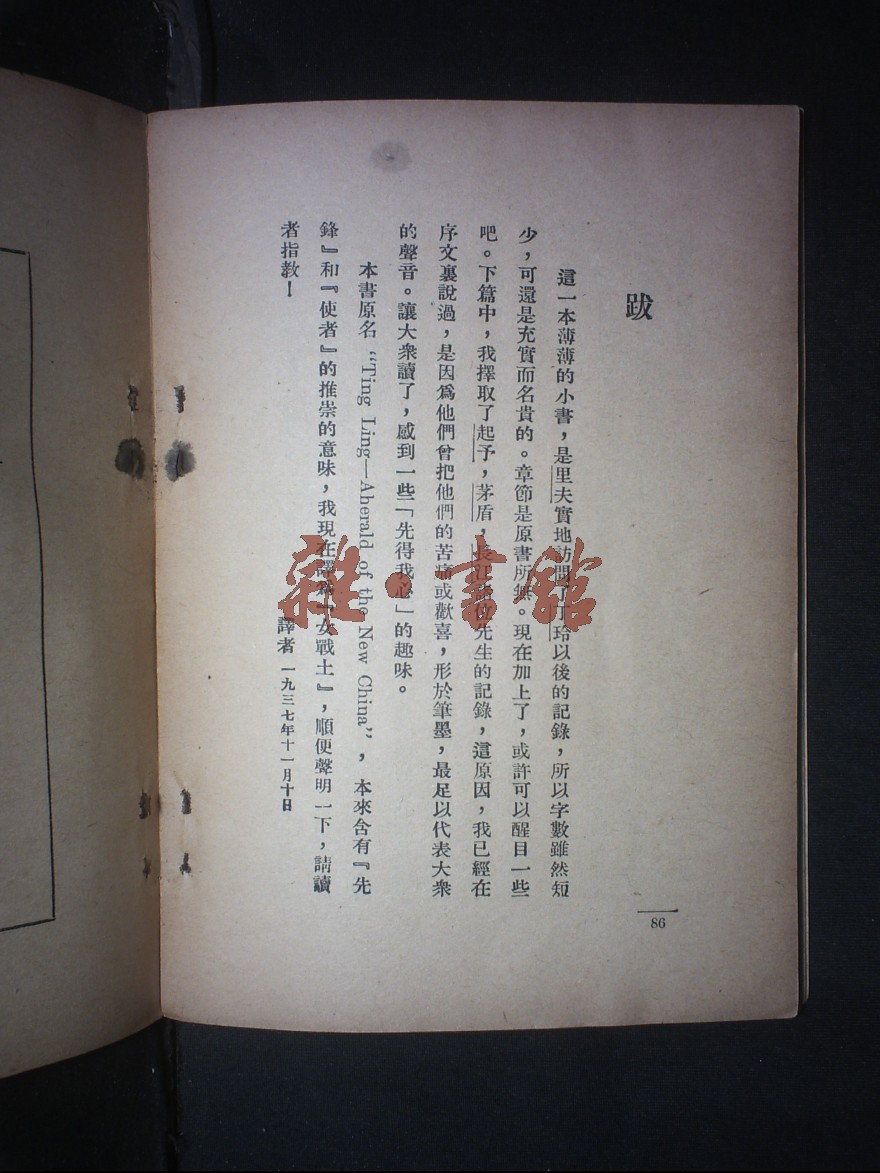 跋
這一本薄薄的小書，是里夫實地訪問了丁玲以後的記錄，所以字數雖然短
少，可還是充實而名貴的。章節是原書所無。現在加上了，或許可以醒目一些
吧。下篇中，我擇取了起予，茅盾，長江諸位先生的記錄，這原因，我已經在
序文裏說過，是因爲他們曾把他們的苦痛或歡喜，形於筆墨，最足以代表大衆
的聲音。讓大衆讀了，感到一些「先得我心」的趣味。
本書原名 “Ting Ling—Aherald of the New China”，本來含有『先
鋒』和『使者』的推崇的意味，我現在譯爲『女戰士』，順便聲明一下，請讀
者指教！
譯者 一九三七年十一月十日
86
雜·書館